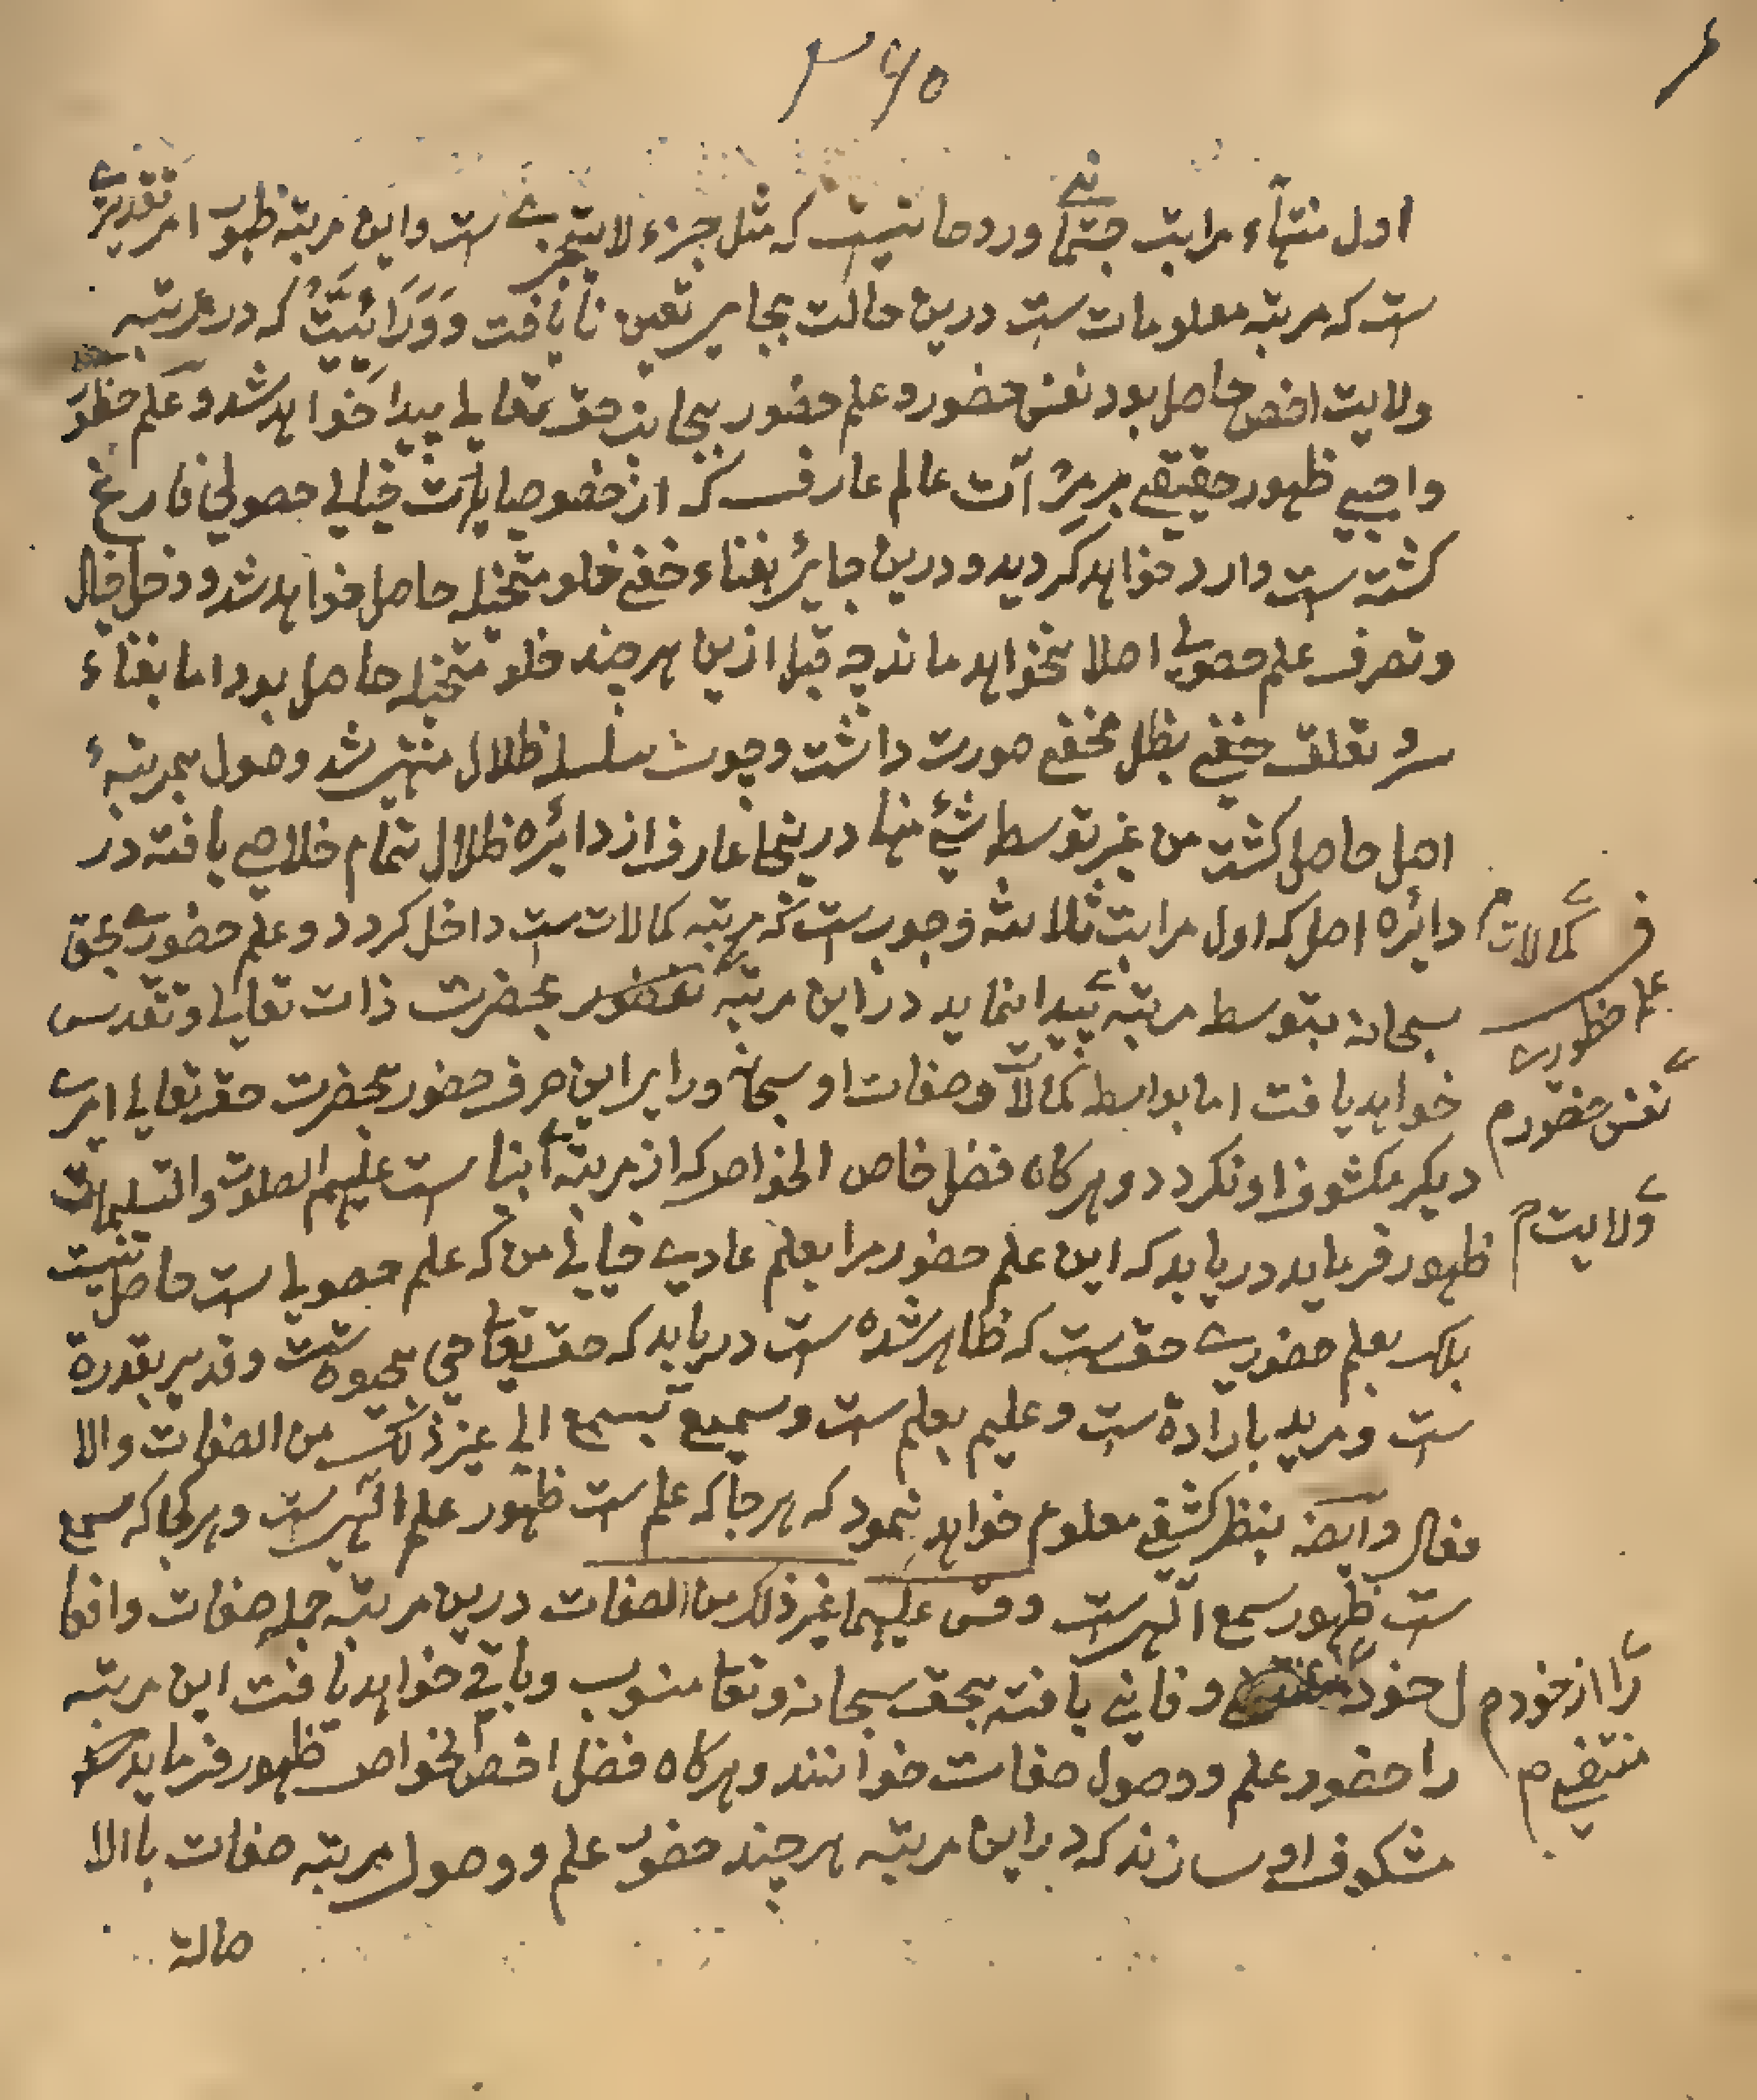 ۳۶۵
اول منتهاء مراتب جسمانی و روحانیست که مثل جزء لا یتجزی ست و این مرتبه ظهور امر تقدیری
ست که مرتبه معلومات ست درین حالت بجا میر تعین نایافت و وَرَائیَّت که در مرتبه
ولایت اخص حاصل بود نفس حضور و علم حضور بجانب حق تعالی پیدا خواهد شد و علم حظور
واجبی ظهور حقیقی بر مرآت عالم عارف که از خصوصیات خیالی حصولی فارغ
کشته ست دارد خواهد کردید و درین جایز بفناء خفی خلو متخیله حاصل خواهد شد و دخل خیال
و تصرف علم حصولی اصلا نخواهد ماند چه قبل ازین هر چند خلو متخیله حاصل بود اما بفناء
سر و تعلق خفی بظل مخفی صورت داشت و چون سلسله ظلال منتهی شد وصول بمرتبهٔ
اصل حاصل کشت من غیر توسط شیٔ منها درینجا عارف از دائره ظلال تمام خلاصی یافته در
دائره اصل که اول مراتب ثلاثه وجوب ست که مرتبه کمالات ست داخل کردد و علم حضوری بحق
سبحانه بتوسط مرتبه پیدا نماید در این مرتبه حضور بحضرت ذات تعالی و تقدس
خواهد یافت اما بواسطه کمالات و صفات او سبحانه ورای این صرف حضور بحضرت حق تعالی امری
دیکر مکشوف او نکردد و هرکاه فضل خاص الخواص که از مرتبهٔ انبیا ست علیهم الصلوت و التسلیمات
ظهور فرماید دریابد که این علم حضور مرا بعلم عادی خیالی من که علم حصولی ست حاصل نیست
بلکه بعلم حضوری حق ست که ظاهر شده ست دریابد که حق تعا حی بحیوه ست و قدیر بقدرة
ست و مرید بارادة ست و علیم بعلم ست و سمیع بسمع الی غیر ذلک من الصفات و الا
فعال و ایضه بنظر کشفی معلوم خواهد نمود که هر جا که علم ست ظهور علم الهی ست و هر کجا که سمع
ست ظهور سمع الهی ست و قس علیهما غیر ذلک من الصفات درین مرتبه جمله صفات و افعا
ل خود و فانی یافته بحق سبحانه و تعا منسوب و باقی خواهد یافت این مرتبه
را حضور علم و وصول صفات خوانند و هرکاه فضل اخص الخواص ظهور فرماید
مشکوف او سازند که در این مرتبه هر چند حضور علم و وصول مرتبه صفات بالا
صالة
کمالات م
علم حظوری
نفس حضور م
ولایت م
را از خود م
منتفی م